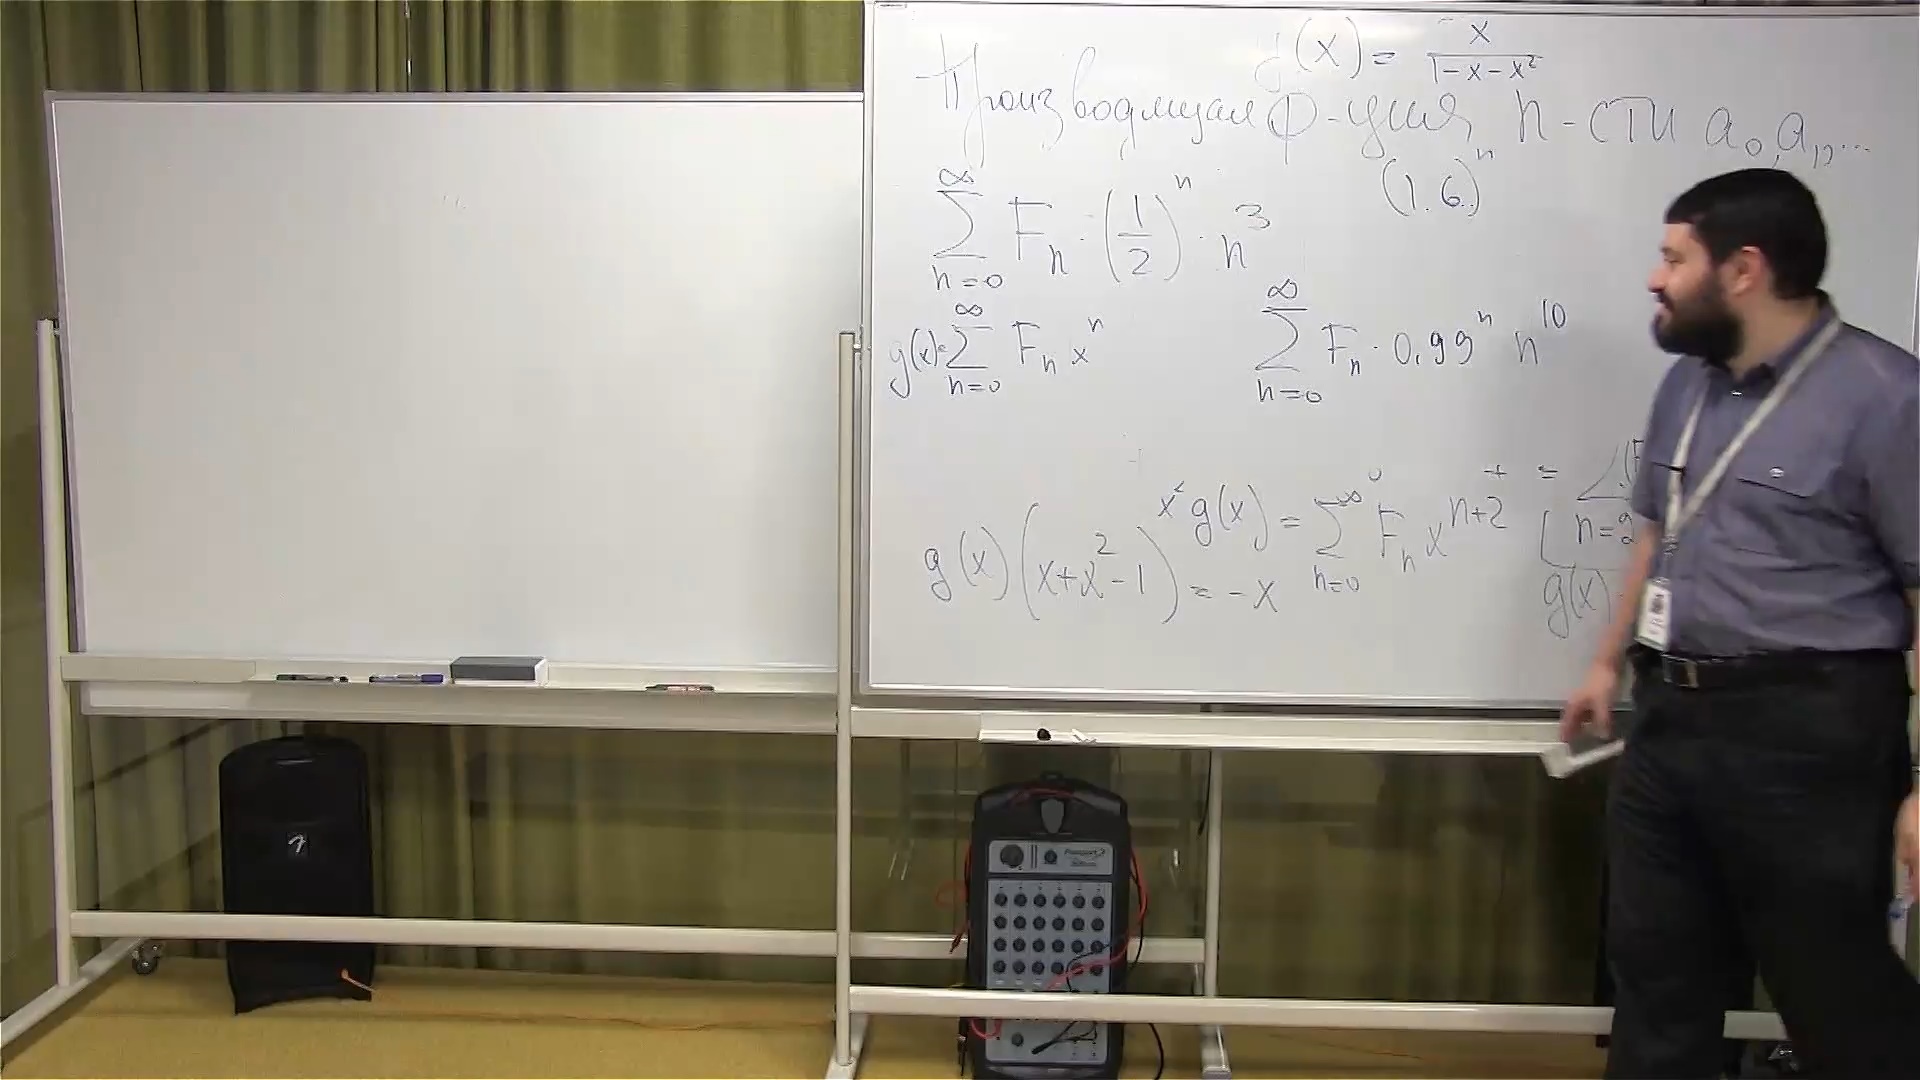 g(x) = x / (1-x-x²)
Производящая ф-ция п-сти a₀,a₁,...
(1.6)ⁿ
∑_{n=0}^{∞} Fₙ · (1/2)ⁿ · n³
g(x)=∑_{n=0}^{∞} Fₙ xⁿ
∑_{n=0}^{∞} Fₙ · 0.99ⁿ n¹⁰
x² g(x) = ∑_{n=0}^{∞} Fₙ x^{n+2}
+ = ∑
n=2
g(x)(x+x²-1) = -x
g(x)